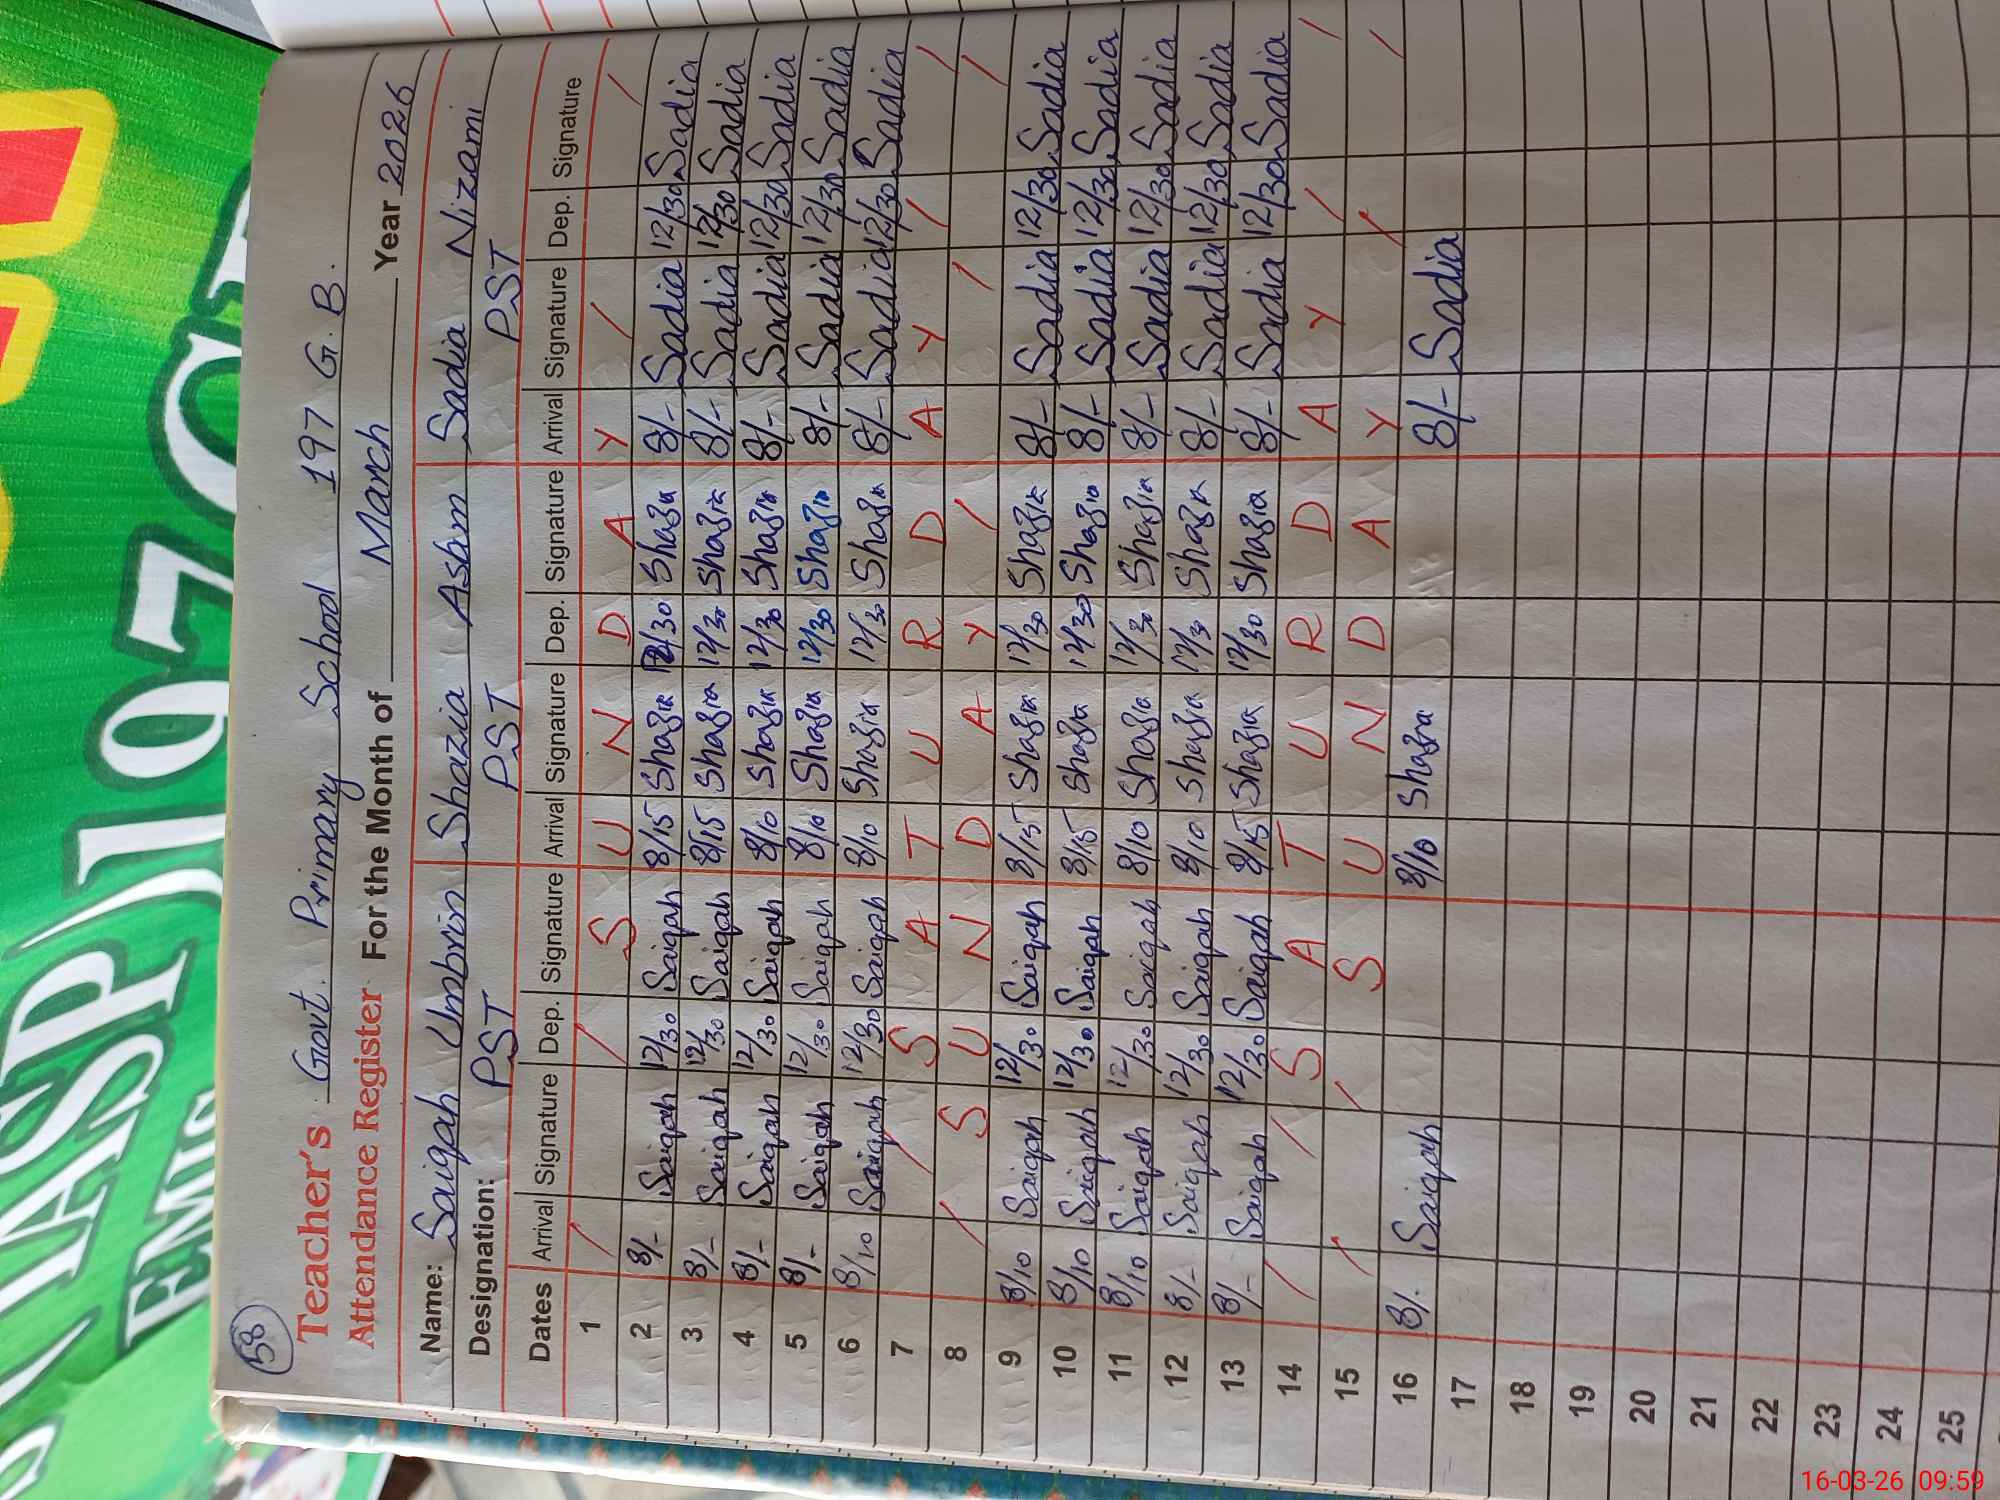 58
Teacher's Govt. Primary School 197 G.B.
Attendance Register For the Month of March Year 2026
Name: Saiqah Umbrin Shazia Aslam Sadia Nizami
Designation: PST PST PST
Dates Arrival Signature Dep. Signature Arrival Signature Dep. Signature Arrival Signature Dep. Signature
1 / / S U N D A Y / /
2 8/- Saiqah 12/30 Saiqah 8/15 Shazia 12/30 Shazia 8/- Sadia 12/30 Sadia
3 8/- Saiqah 12/30 Saiqah 8/15 Shazia 12/30 Shazia 8/- Sadia 12/30 Sadia
4 8/- Saiqah 12/30 Saiqah 8/10 Shazia 12/30 Shazia 8/- Sadia 12/30 Sadia
5 8/- Saiqah 12/30 Saiqah 8/10 Shazia 12/30 Shazia 8/- Sadia 12/30 Sadia
6 8/10 Saiqah 12/30 Saiqah 8/10 Shazia 12/30 Shazia 8/- Sadia 12/30 Sadia
7 / S A T U R D A Y / /
8 / S U N D A Y / / /
9 8/10 Saiqah 12/30 Saiqah 8/15 Shazia 12/30 Shazia 8/- Sadia 12/30 Sadia
10 8/10 Saiqah 12/30 Saiqah 8/15 Shazia 12/30 Shazia 8/- Sadia 12/30 Sadia
11 8/10 Saiqah 12/30 Saiqah 8/10 Shazia 12/30 Shazia 8/- Sadia 12/30 Sadia
12 8/- Saiqah 12/30 Saiqah 8/10 Shazia 12/30 Shazia 8/- Sadia 12/30 Sadia
13 8/- Saiqah 12/30 Saiqah 8/15 Shazia 12/30 Shazia 8/- Sadia 12/30 Sadia
14 / / S A T U R D A Y / /
15 / / S U N D A Y / /
16 8/- Saiqah 8/10 Shazia 8/- Sadia
17
18
19
20
21
22
23
24
25
197
EMIS
16-03-26 09:59